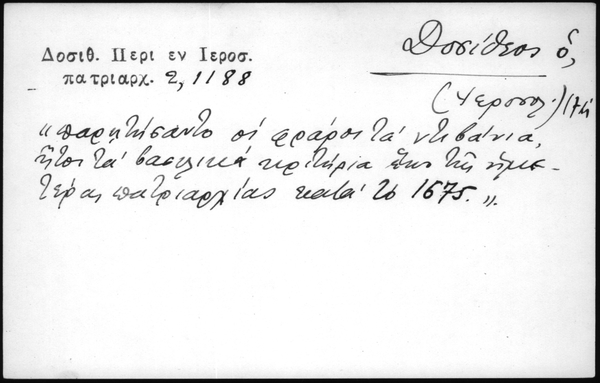 Δοσιθ. Περι εν Ιεροσ.
πατριαρχ. 2, 1188
Δοσίθεος ὁ,
(Ἱεροσολ.)
"παρῃτήσαντο οἱ φράροι τὰ ντιβάνια,
ἤτοι τὰ βασιλικὰ κριτήρια ἐπὶ τῆς ἡμε-
τέρας πατριαρχίας κατὰ τὸ 1675.".